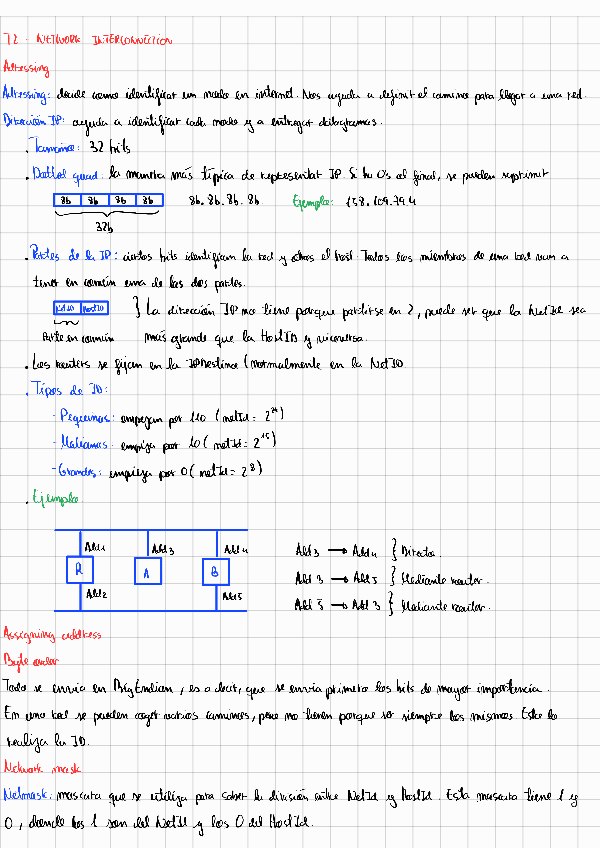 T2 · NETWORK INTERCONNECTION
Adressing
Adressing: donde como identificar un nodo en internet. Nos ayuda a definir el camino para llegar a una red.
Dirección IP: ayuda a identificar cada nodo y a entregar datagramas.
· Tamaño: 32 bits
· Dotted quad: la manera más típica de representar IP. Si hu 0s al final, se pueden suprimir
8b 8b 8b 8b 8b. 8b. 8b. 8b. Ejemplo: 158.109.79.4
32b
· Partes de la IP: ciertos bits identifican la red y otros el host. Todos los miembros de una red van a
tener en común una de las dos partes.
NetID HostID } La dirección IP no tiene porque partirse en 2, puede ser que la NetId sea
Parte en común más grande que la HostID y viceversa.
· Los routers se fijan en la IPDestino (normalmente en la NetID
· Tipos de ID:
- Pequeñas: empiezan por 110 (netId = 2²⁴)
- Medianas: empieza por 10 (netId = 2¹⁶)
- Grandes: empieza por 0 (netId = 2⁸)
· Ejemplo
Add1 Add3 Add4
R A B
Add2 Add5
Add 3 → Add4 } Directo.
Add 3 → Add 5 } Mediante router.
Add 5 → Add 3 } Mediante router.
Assigning address
Byte order
Todo se envia en BigEndian, es a decir, que se envia primero los bits de mayor importancia.
En una red se pueden coger varios caminos, pero no tienen porque ser siempre los mismos. Esto lo
realiza la ID.
Network mask
Netmask: mascara que se utiliza para saber la división entre NetId y HostId. Esta mascara tiene 1 y
0, donde los 1 son del NetId y los 0 del HostId.